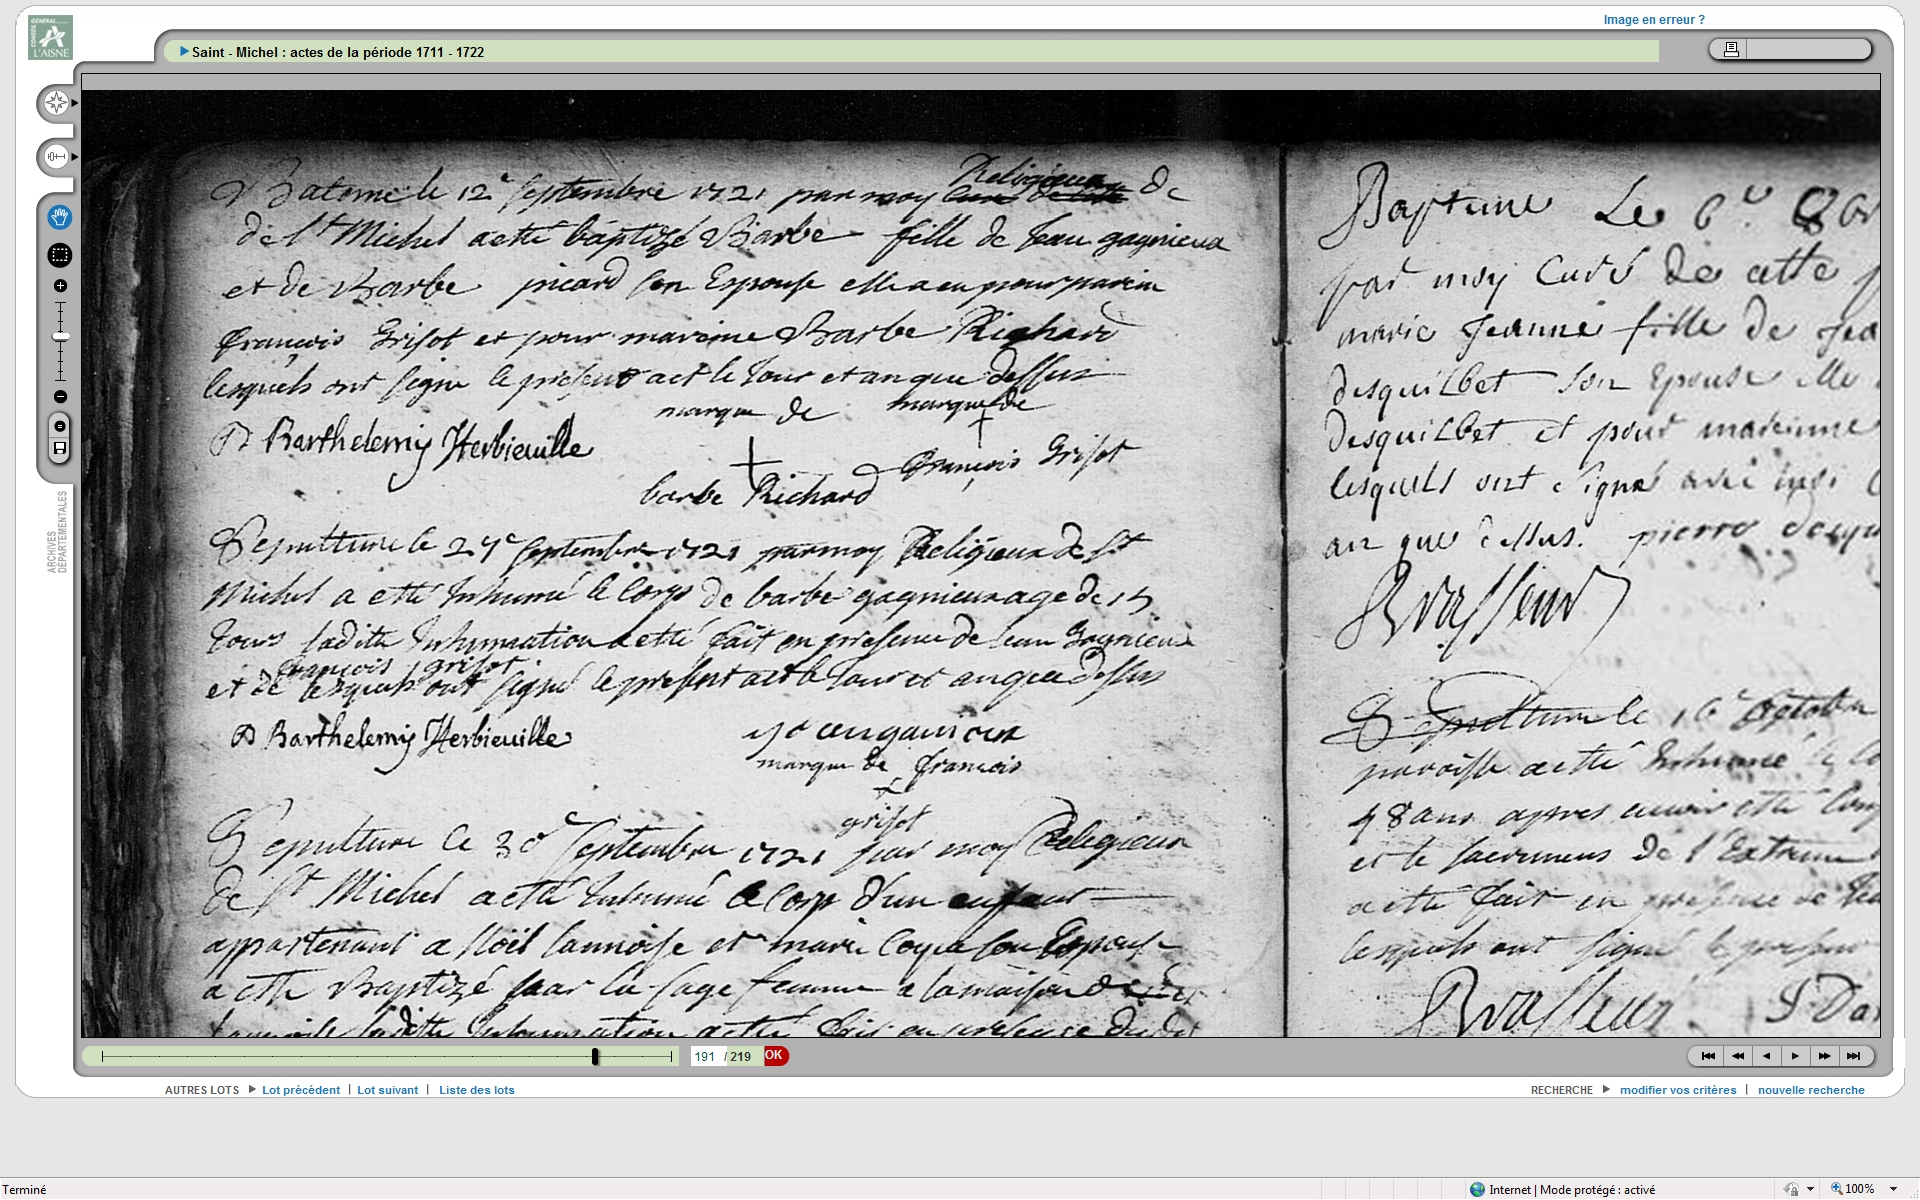 Image en erreur ?
CONSEIL GÉNÉRAL L'AISNE
Saint - Michel : actes de la période 1711 - 1722
ARCHIVES DÉPARTEMENTALES
Batemé le 12e septembre 1721 par moy Religieux de
de St Michel a etté baptizé Barbe fille de Jean gagnieux
et de Barbe picard son Epouse elle a eu pour parein
françois Grisot et pour mareine Barbe Richard
lesquels ont signe le present act le Jour et an que dessus
marque de marque de
D Barthelemij Herbieuille
françois Grisot
barbe Richard
Sepulture le 27e septembre 1721 par moy Religieux de St
Michel a etté Inhumé le Corps de barbe gagnieux age de 15
Jours ladite Inhumation a etté fait en presence de Jean Gagnieux
françois grisot
et de lesquels ont signé le present act le Jour et an que dessus
D Barthelemij Herbieuille
marque de francois
grisot
Sepulture le 30e septembre 1721 par moy Religieux
de St Michel a etté Inhumé le Corp d'un enfant
appartenant a Noël lannoise et marie Coqu son Epouse
a etté Baptizé par la sage femme a la maison
ladite Inhumation a etté fait en presence dudit
Bapteme Le 6e
par moy Curé de cette
marie Jeanne fille de Jea
desquilbet son Epouse elle
desquilbet et pour mareinne
lesquels ont signé avec moi
an que dessus. pierre desqu
Brasseur
Sepulture le 16e octobre
paroisse a etté Inhumé le Co
48 ans apres auoir etté
et le sacremens de l'Extreme
a etté fait en presence de
lesquels ont signé le presen
Brasseur
191 / 219 OK
AUTRES LOTS Lot précédent | Lot suivant | Liste des lots
RECHERCHE modifier vos critères | nouvelle recherche
Terminé
Internet | Mode protégé : activé
100%